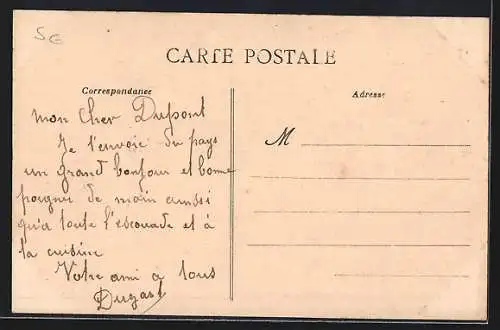 5€
CARTE POSTALE
Correspondance
Adresse
mon cher Dupont
Je t'envoie du pays
un grand bonjour et bonne
poigne de main aussi
qu'a toute l'escouade et à
la cuisine
Votre ami a tous
Dugast
M